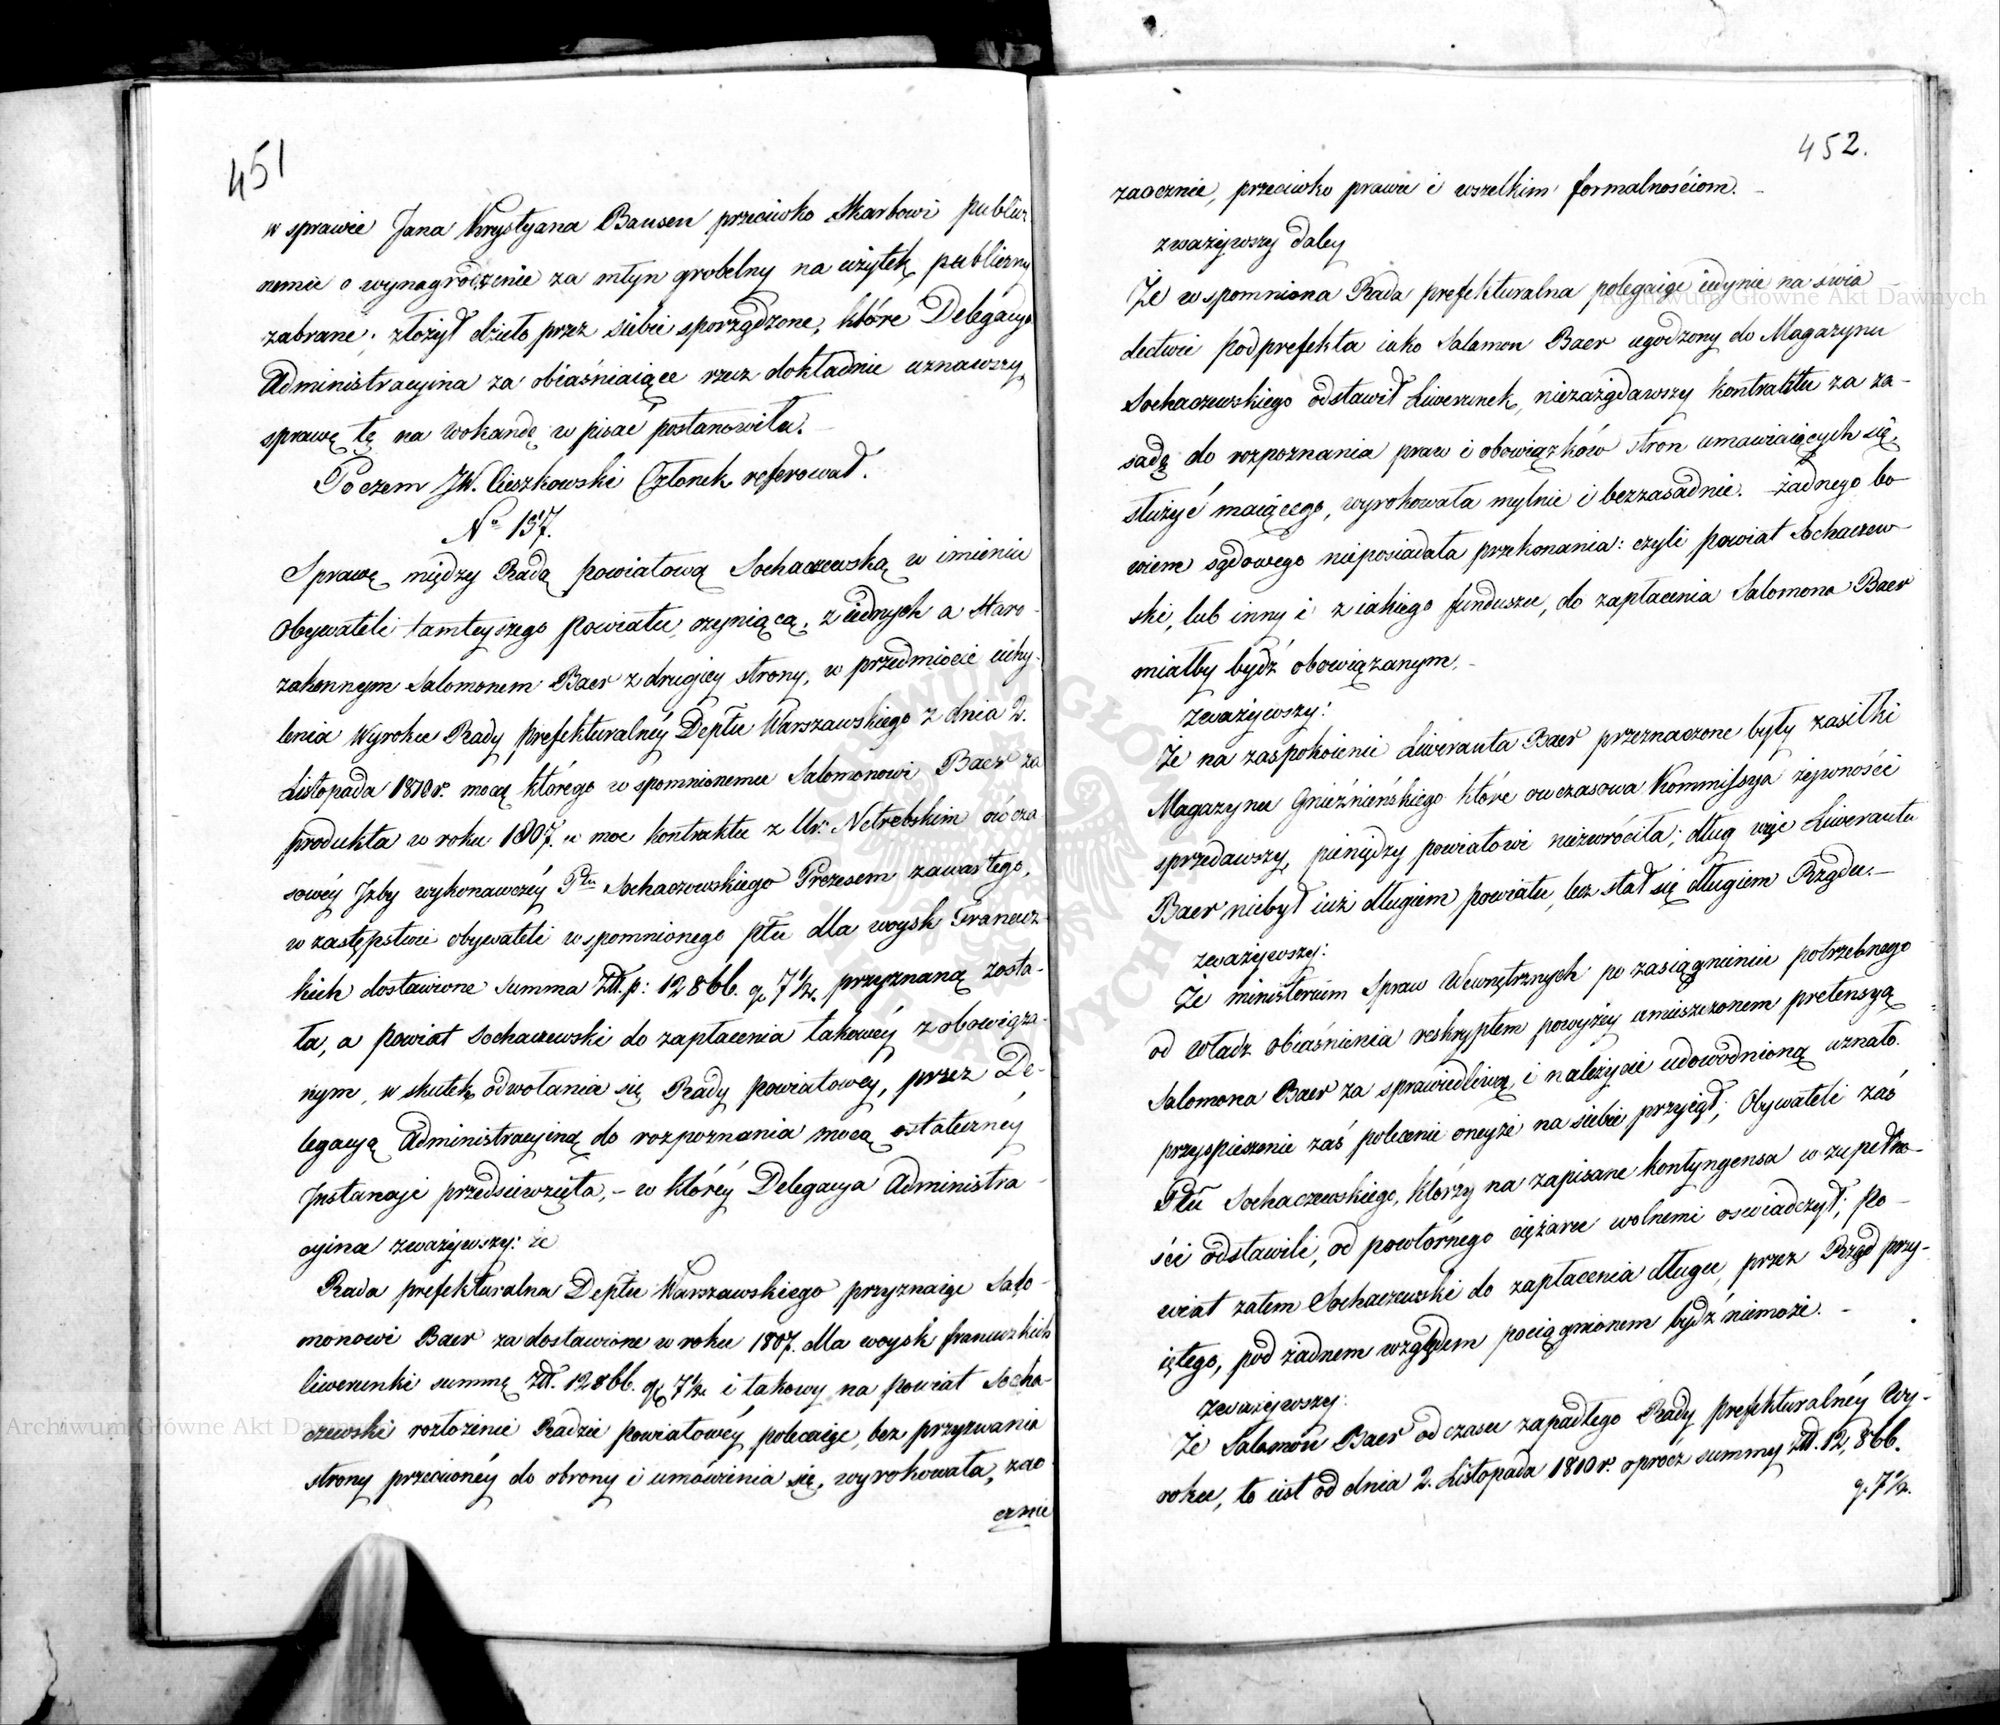 451
w sprawie Jana Krystyana Bausen przeciwko Skarbowi publicz
nemu o wynagrodzenie za młyn grobelny na użytek publiczny
zabrane; złożył dzieło przez siebie sporządzone, które Delegacya
Administracyina za obiaśniaiące rzecz dokładnie uznawszy,
sprawę tę na wokandę wpisać postanowiła.
Poczem JW. Cieszkowski Członek referował.
No 137.
Sprawę między Radą powiatową Sochaczewską w imieniu
Obywateli tamteyszego Powiatu, czyniącą, z iednych a Staro-
zakonnym Salomonem Baer z drugiey strony, w przedmiocie uchy-
lenia Wyroku Rady prefekturalnéy Deptu Warszawskiego z dnia 2.
Listopada 1810r. mocą którego wspomnionemu Salomonowi Baer za
produkta w roku 1807. w moc kontraktu z Ur: Netrebskim ówcza
sowéy Jzby wykonawczéy Ptu Sochaczewskiego Prezesem zawartego,
w zastępstwie obywateli wspomnionego ptu dla woysk Francuz-
kich dostawione summa Złł. p: 12866. gr 7½. przyznaną zosta-
ła, a powiat Sochaczewski do zapłacenia takowéy zobowiąza-
nym, w skutek odwołania się Rady powiatowéy, przez De-
legacyą Administracyiną do rozpoznania mocą ostateczney
Jnstancyi przedsiewzięta, – w któréy Delegacya Administra-
cyina zważywszy: że
Rada prefekturalna Deptu Warszawskiego przyznaiąc Salo-
monowi Baer za dostawione w roku 1807. dla woysk francuzkich
liwerunki summę Złł. 12866. gr 7½ i takowy na powiat Socha-
czewski rozłożenie Radzie powiatowéy polecaiąc, bez przyzwania
strony przeciwnéy do obrony i umówienia się, wyrokowała, zao-
cznie
452.
zaocznie, przeciwko prawu i wszelkim formalnościom. –
zważywszy daley
Że wspomniona Rada prefekturalna polegaiąc iedynie na świa-
dectwie podprefekta iako Salamon Baer ugodzony do Magazynu
Sochaczewskiego odstawił Liwerunek, niezażądawszy kontraktu za za-
sadę do rozpoznania praw i obowiązków stron umawiaiących się,
służyć maiącego, wyrokowała mylnie i bezzasadnie. żadnego bo-
wiem sądowego nieposiadała przekonania: czyli powiat Sochaczew-
ski, lub inny i z iakiego funduszu, do zapłacenia Salomona Baer
miałby bydź obowiązanym. –
Zważywszy:
Że na zaspokoienie Liweranta Baer przeznaczone były zasiłki
Magazynu Gnieźnieńskiego które owczasowa Kommissya żywności
sprzedawszy, pieniędzy powiatowi niezwróciła; dług więc Liweranta
Baer niebył iuż długiem powiatu, lecz stał się długiem Rządu. –
zważywszy:
Że ministerium Spraw Wewnętrznych po zasiągnieniu potrzebnego
od władz obiaśnienia reskryptem powyżey umieszczonem pretensyą
Salomona Baer za sprawiedliwą i należycie udowodnioną uznało.
przyspieszenie zaś polecenie oneyże na siebie przyiął; Obywateli zaś
Ptu Sochaczewskiego, którzy na zapisane kontyngensa w zupełno-
ści odstawili, od powtórnego ciężaru wolnemi oświadczył; po-
wiat zatem Sochaczewski do zapłacenia długu, przez Rząd przy-
iętego, pod żadnem względem pociągnionem bydź niemoże. –
zważywszy:
Że Salomon Baer od czasu zapadłego Rady prefekturalnéy Wy-
roku, to iest od dnia 2. Listopada 1810r. oprócz summy złł. 12,866.
gr 7½.
Archiwum Główne Akt Dawnych